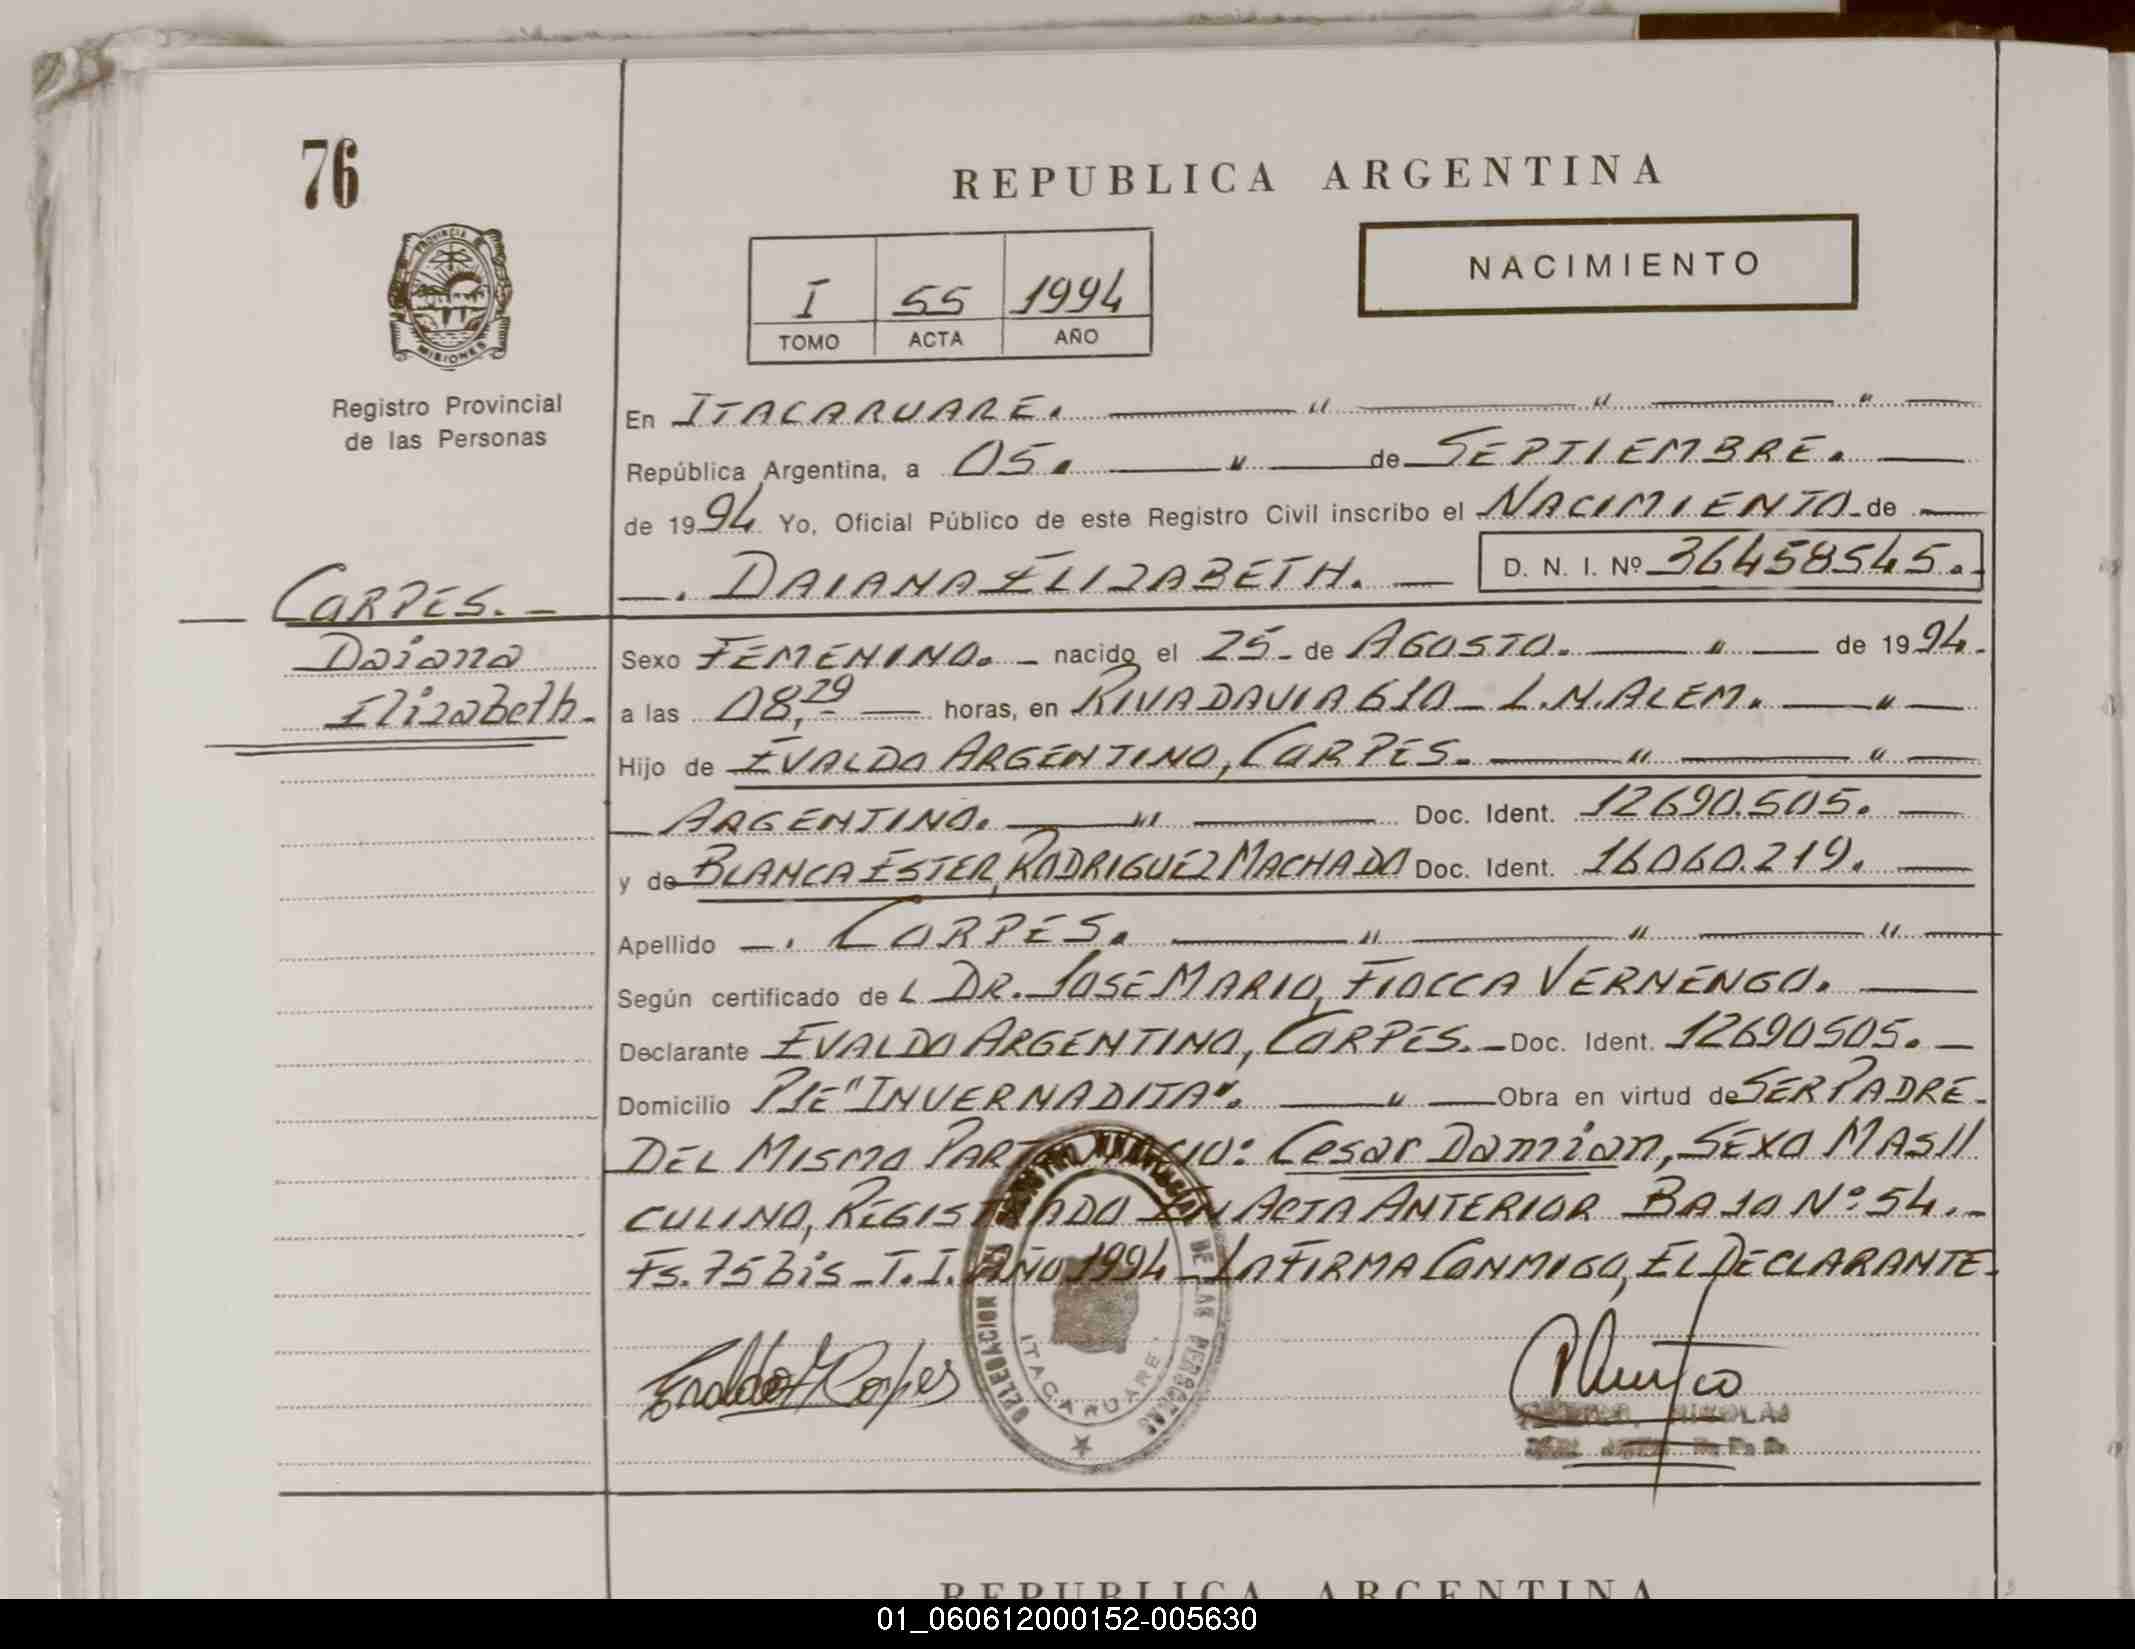 76
REPUBLICA ARGENTINA
NACIMIENTO
I 55 1994
TOMO ACTA AÑO
PROVINCIA
MISIONES
Registro Provincial
de las Personas
En ITACARUARE. — " — " — " —
República Argentina, a 05. — " — de SEPTIEMBRE. —
de 1994 Yo, Oficial Público de este Registro Civil inscribo el NACIMIENTO de —
—. DAIANA ELIZABETH. — D. N. I. Nº 36458545.-
— CORPES. -
Daiana
Elizabeth.-
Sexo FEMENINO. - nacido el 25 - de AGOSTO. — " — de 1994.
a las 08,29 — horas, en RIVADAVIA 610 - L.N.ALEM. — " —
Hijo de EVALDO ARGENTINO, CORPES. — " — " —
— ARGENTINO. — " — Doc. Ident. 12690.505. —
y de BLANCA ESTER, RODRIGUEZ MACHADO Doc. Ident. 16060.219. —
Apellido —. CORPES. — " — " — " —
Según certificado de L DR. JOSE MARIO, FIOCCA VERNENGO. —
Declarante EVALDO ARGENTINO, CORPES. - Doc. Ident. 12690505. —
Domicilio PJE "INVERNADITA". — " — Obra en virtud de SER PADRE-
DEL MISMO PARTO NACIO: Cesar Damian, SEXO MAS//
CULINO, REGISTRADO EN ACTA ANTERIOR BAJO Nº 54.-
Fs. 75 bis - T. I. AÑO 1994 - LA FIRMA CONMIGO, EL DECLARANTE-
DELEGACION DE LAS PERSONAS
ITACARUARE
Evaldo A Corpes
NIKOLAS
REPUBLICA ARGENTINA
01_060612000152-005630